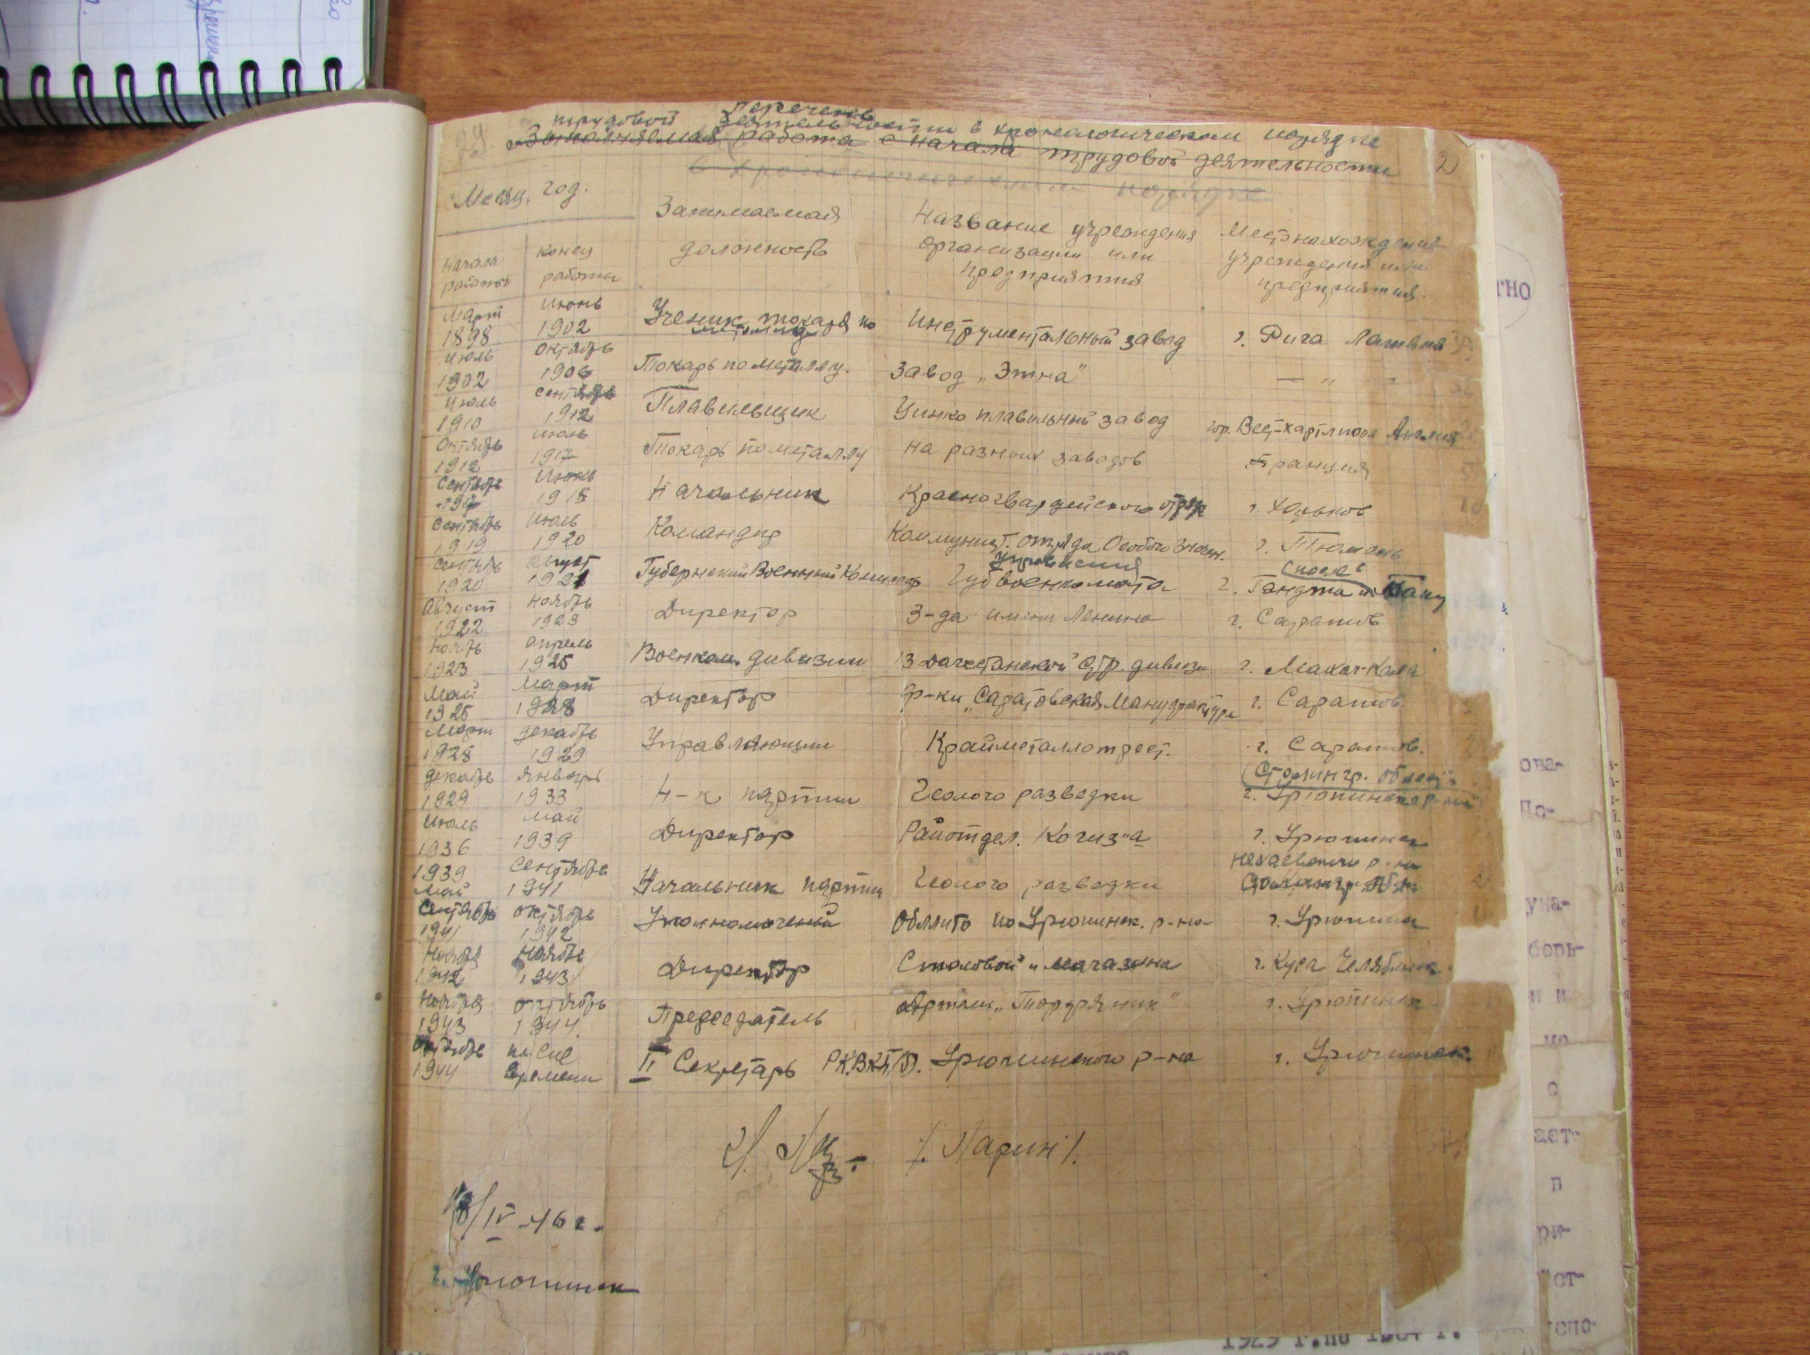 Перечень
трудовой деятельности в хронологическом порядке
Выполняемая работа с начала трудовой деятельности
в хронологическом порядке
2
Месяц, год.
Занимаемая должность
Название учреждения организации или предприятия
Местнахождения учреждения или предприятия.
начала работы
конец работы
Март 1898 Июнь 1902 Ученик токаря по металлу Инструментальный завод г. Рига Латвия
Июль 1902 октябрь 1906 Токарь по металлу. Завод „Этна" — „ —
Июль 1910 сентябрь 1912 Плавильщик Цинко плавильный завод гор. Вест-хартлпооль Англия
Октябрь 1912 июль 1917 Токарь по металлу на разных заводов Франция
Сентябрь 1917 Июнь 1918 Начальник Красногвардейского отряда г. Харьков
Сентябрь 1919 Июль 1920 Командир Коммунист. отряда Особого Значен. г. Тюмень
Сентябрь 1920 август 1921 Губернский Военный Комиссар Губвоенкомата г. Ганджа и Баку
Август 1922 ноябрь 1923 Директор З-да имени Ленина г. Саратов
Ноябрь 1923 апрель 1925 Военком. дивизии 13 Дагестанской Стр. дивизи г. Махач-Кала
Май 1925 март 1928 Директор Ф-ки „Саратовская Мануфактура г. Саратов.
Март 1928 декабрь 1929 Управляющий Крайметаллотрест. г. Саратов.
декабрь 1929 январь 1933 Н-к партии Геолого разведки (Сталингр. област. г. Урюпинск р-на
Июль 1936 май 1939 Директор Райотдел. Когиз-а г. Урюпинск
1939 май Сентябрь 1941 Начальник партии Геолого разведки Нехаевского р-на Сталингр. обл.
Сентябрь 1941 октябрь 1942 Уполномоченый Обллито по Урюпинск. р-на г. Урюпинск
Ноябрь 1942 Ноябрь 1943 Директор Столовой и магазина г. Куса Челябинск.
Ноябрь 1943 октябрь 1944 Председатель Артели „ г. Урюпинск
Октябрь 1944 по сие времени II Секретарь РК.ВКП(б). Урюпинского р-на г. Урюпинск.
/. Ларин /.
/IV-46 г.
г. Урюпинск
тно
ова-
по-
уна-
борь-
и и
но
с
ает-
в
ри-
ст-
1929 г.по